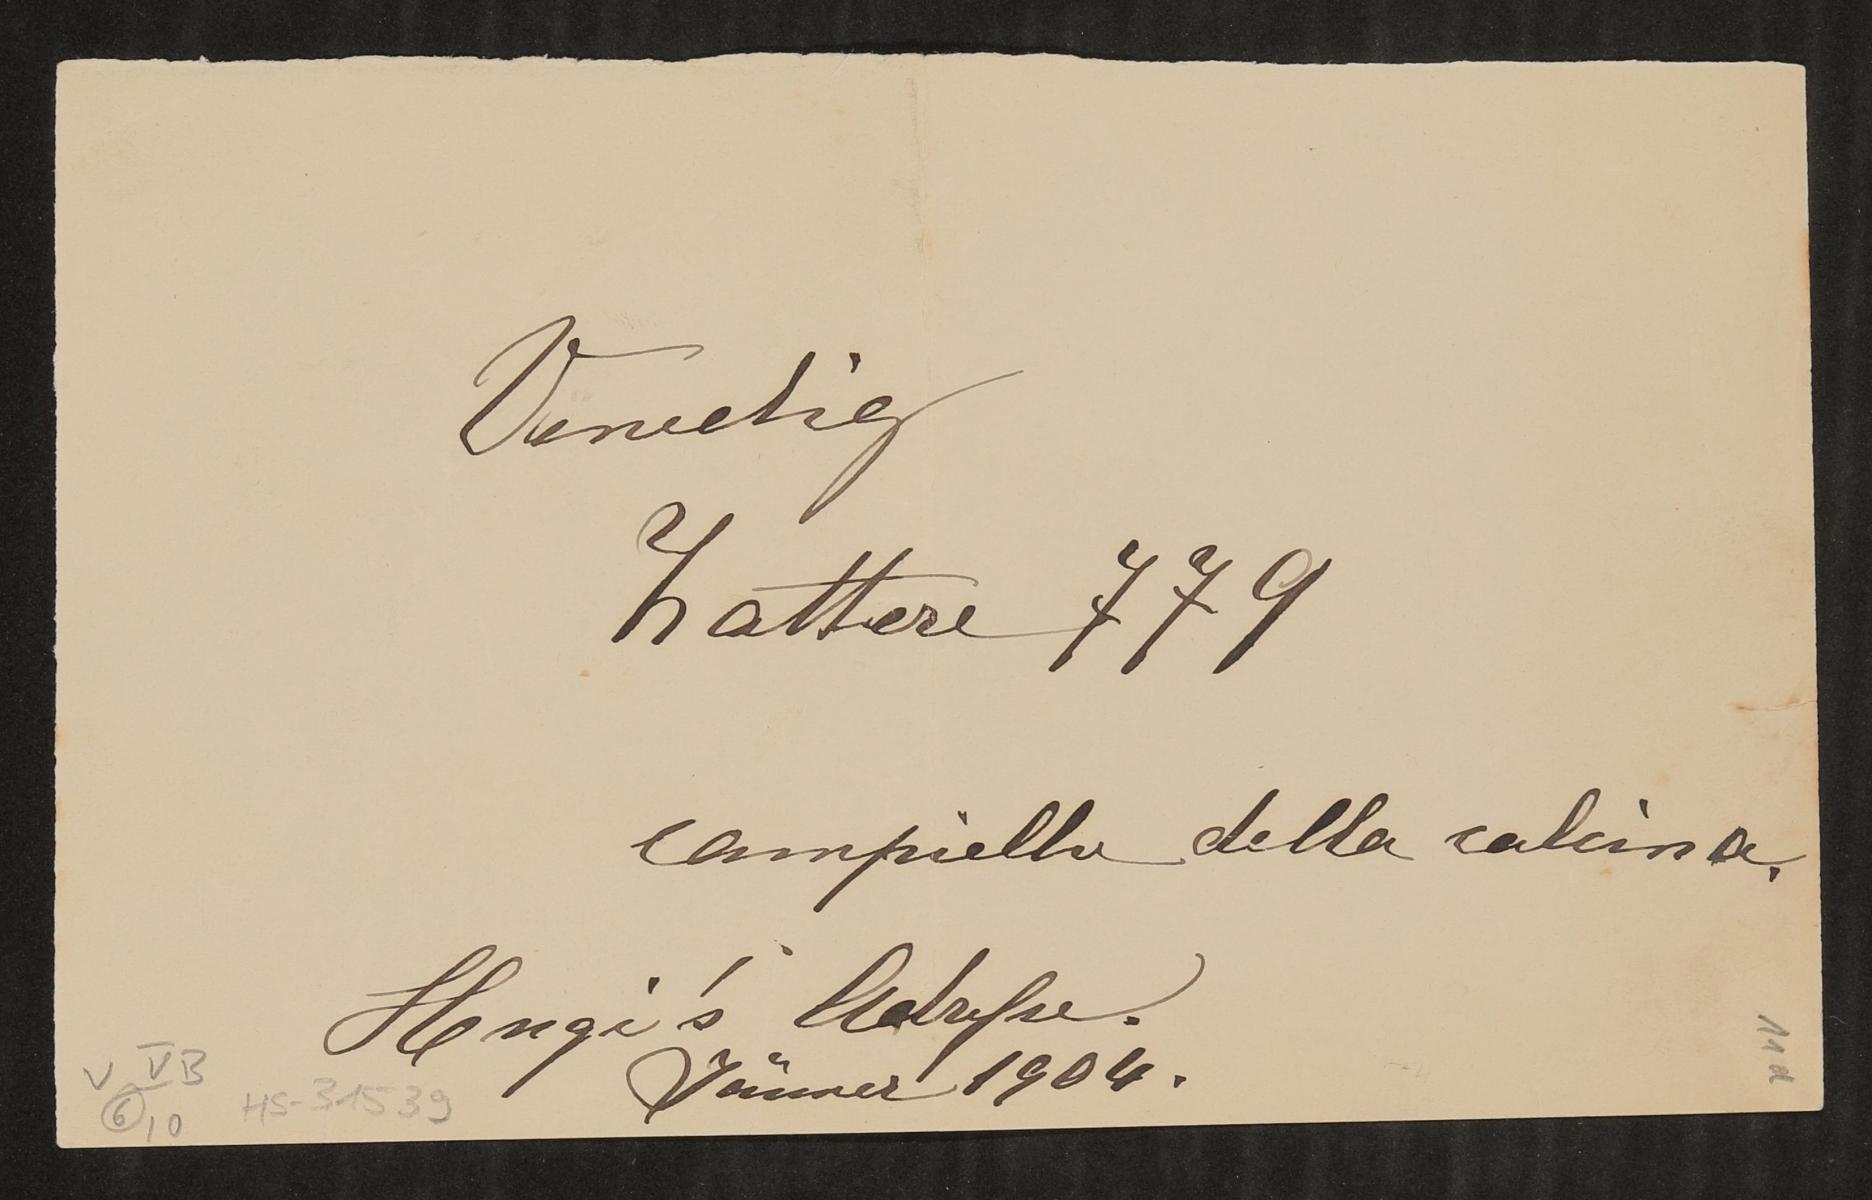 Venedig
Zattere 779
campiello della calcina.
Hongi's Adresse.
Jänner 1904.
V VB
6 10
HS-31539
11d